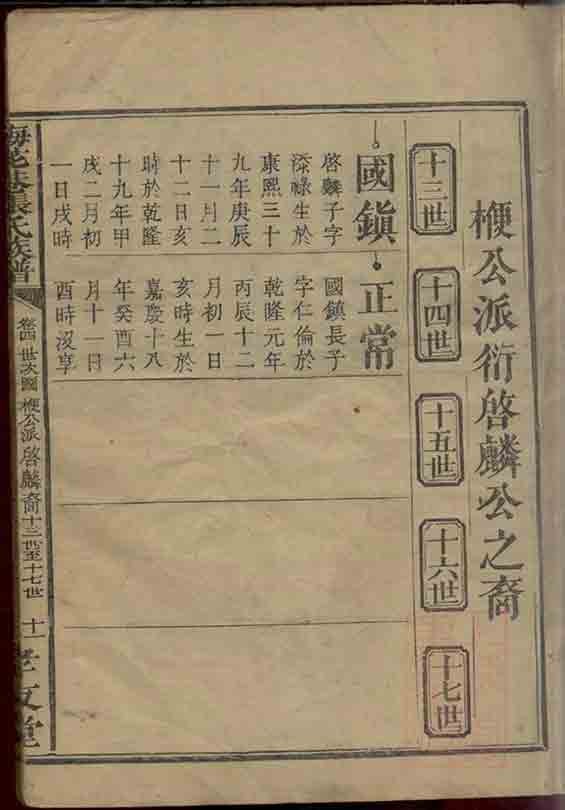 楩公派衍啓麟公之裔
十三世
十四世
十五世
十六世
十七世
國鎮
啓麟子字
添祿生於
康熙三十
九年庚辰
十一月二
十二日亥
時於乾隆
十九年甲
戌二月初
一日戌時
正常
國鎮長子
字仁倫於
乾隆元年
丙辰十二
月初一日
亥時生於
嘉慶十八
年癸酉六
月十一日
酉時没享
張氏族譜
卷四 世次圖 楩公派 啓麟裔十三世至十七世 十一
孝友堂